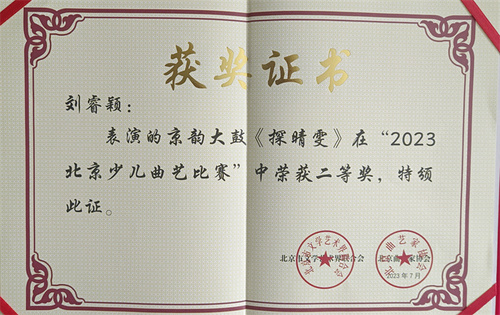 获奖证书
刘睿颖：
表演的京韵大鼓《探晴雯》在“2023
北京少儿曲艺比赛”中荣获二等奖，特颁
此证。
北京市文学艺术界联合会 北京曲艺家协会
2023年7月